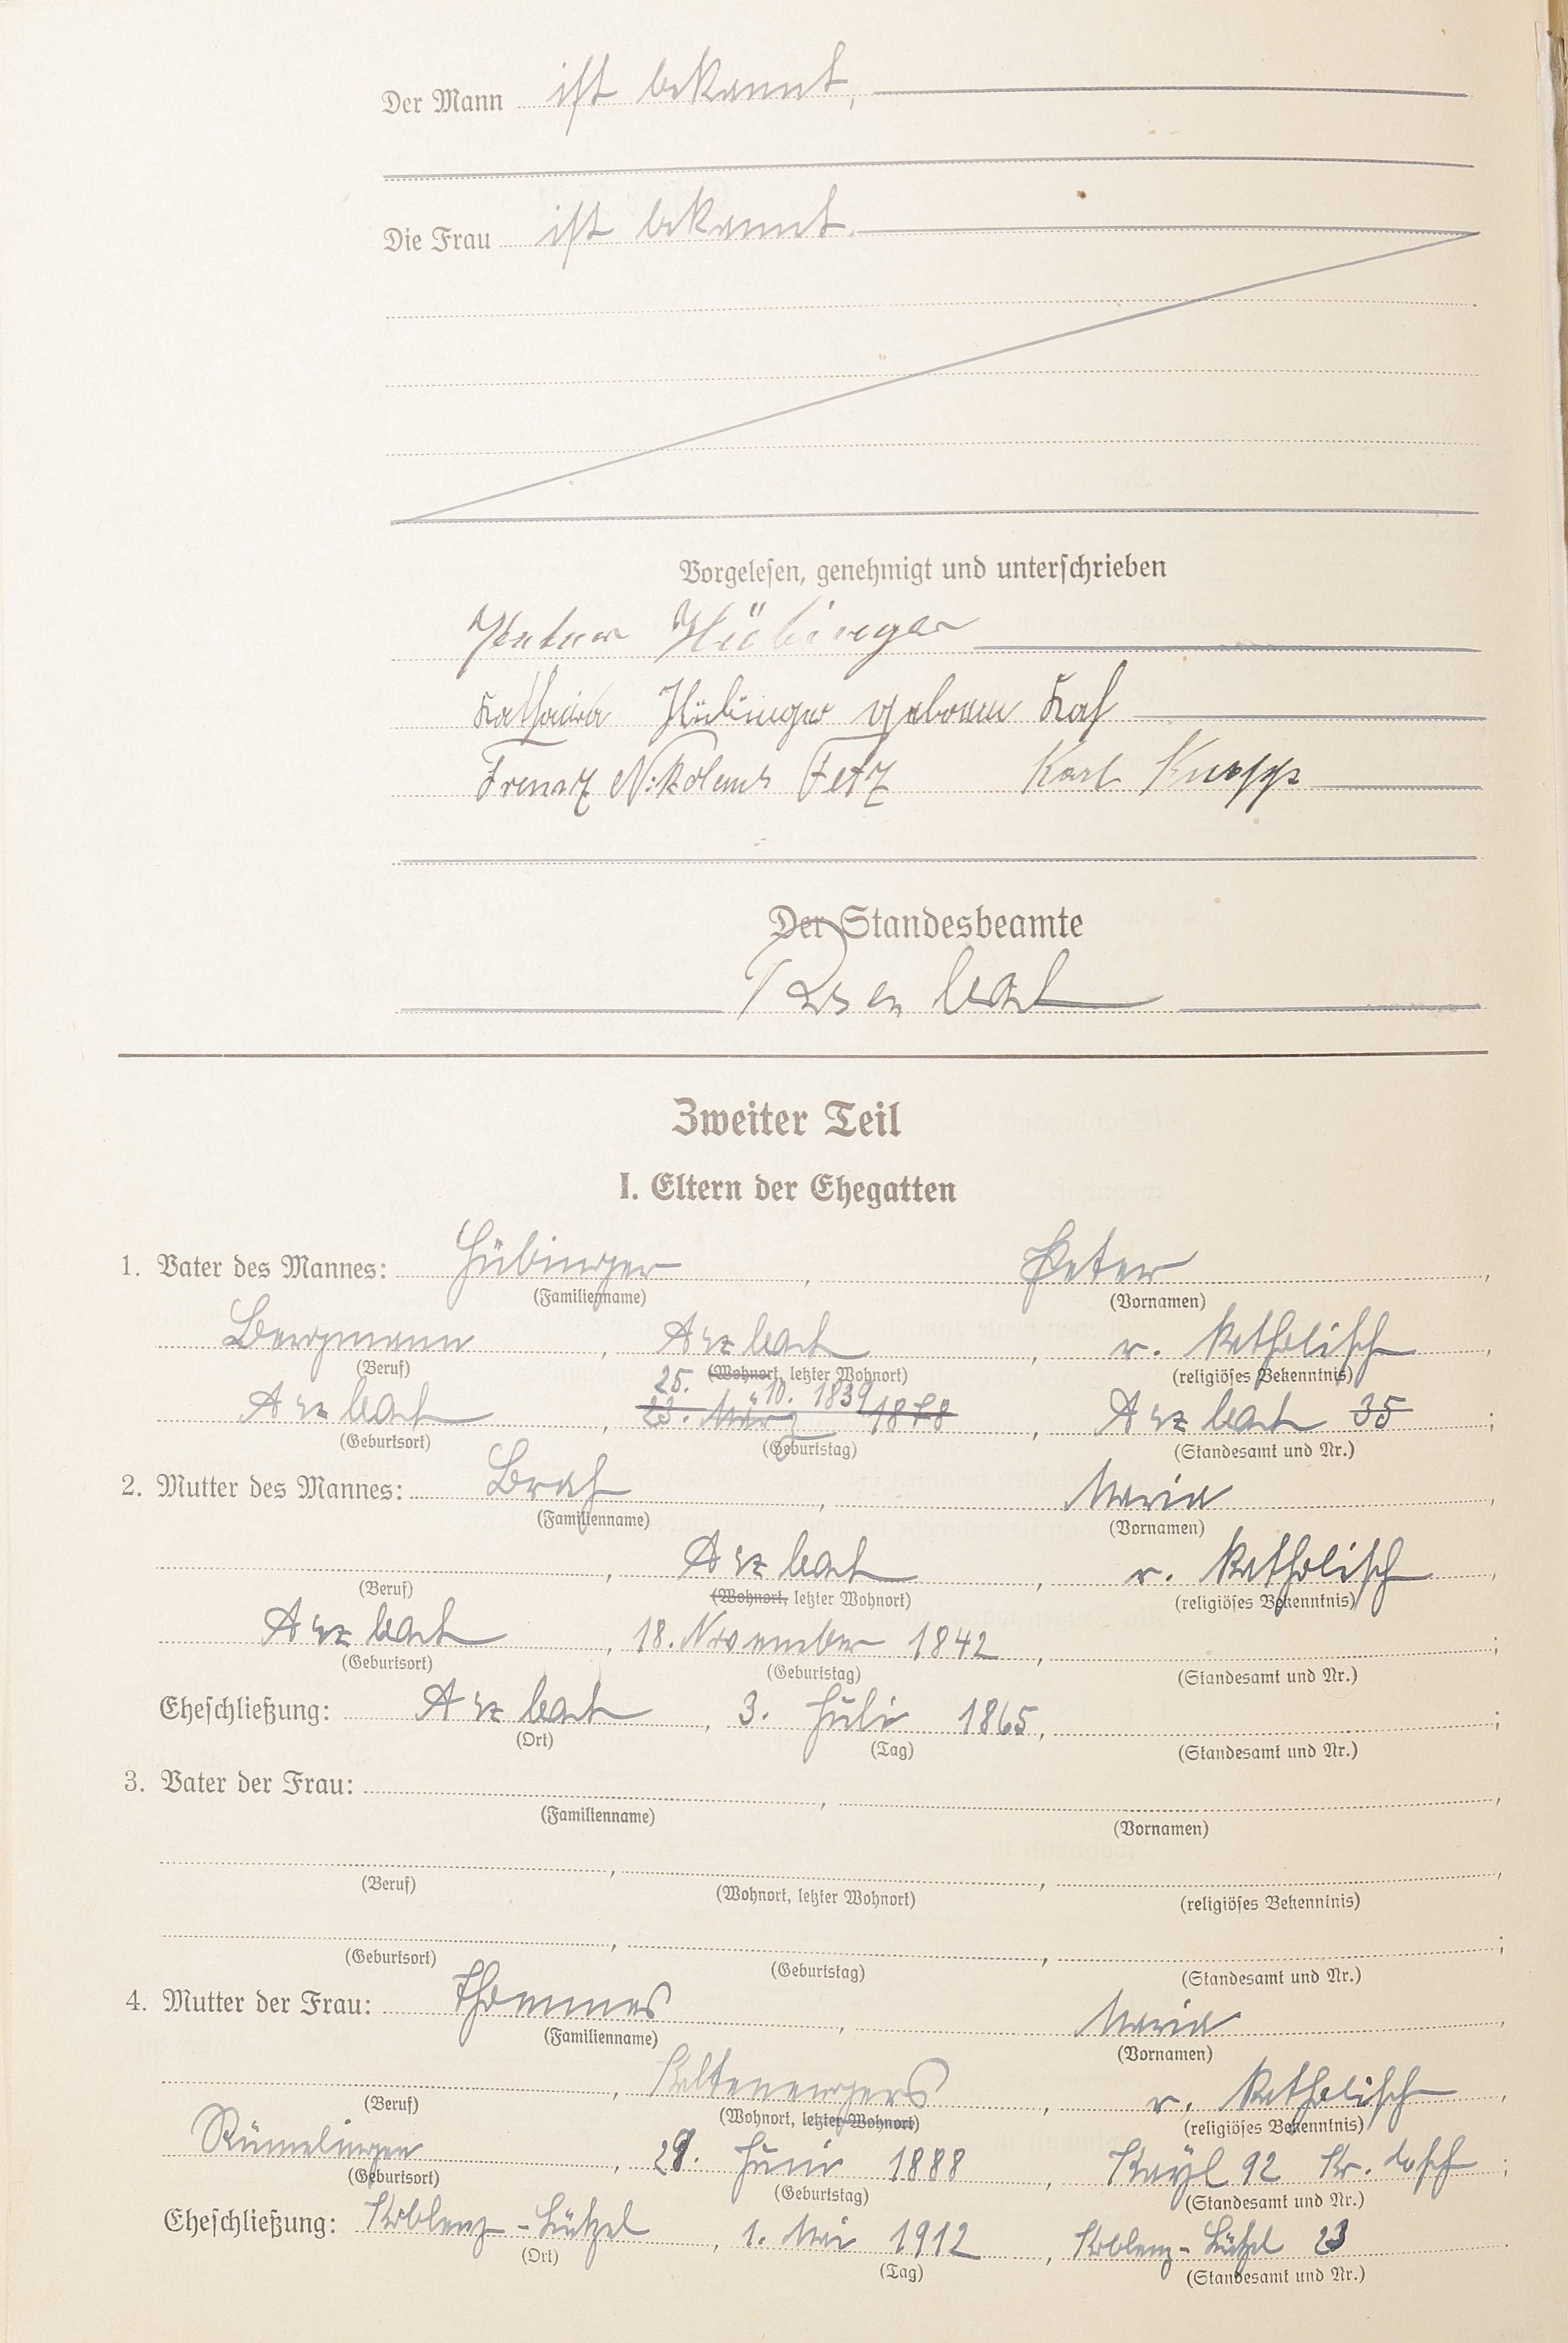 Der Mann ist bekannt,
Die Frau ist bekannt.
Vorgelesen, genehmigt und unterschrieben
Peter Hübinger
Katharina Hübinger geborene
Franz Nikolaus Fetz Karl Knopp
Der Standesbeamte
Zweiter Teil
I. Eltern der Ehegatten
1. Vater des Mannes: Hübinger, Peter,
(Familienname) (Vornamen)
Bergmann, Arzbach, r. katholisch,
(Beruf) (Wohnort, letzter Wohnort) (religiöses Bekenntnis)
25. 10. 1839
Arzbach, 23. März 1878, Arzbach 35;
(Geburtsort) (Geburtstag) (Standesamt und Nr.)
2. Mutter des Mannes: Maria,
(Familienname) (Vornamen)
, Arzbach, r. katholisch,
(Beruf) (Wohnort, letzter Wohnort) (religiöses Bekenntnis)
Arzbach, 18. November 1842, ;
(Geburtsort) (Geburtstag) (Standesamt und Nr.)
Eheschließung: Arzbach, 3. Juli 1865, ;
(Ort) (Tag) (Standesamt und Nr.)
3. Vater der Frau: , ,
(Familienname) (Vornamen)
(Beruf) (Wohnort, letzter Wohnort) (religiöses Bekenntnis)
(Geburtsort) (Geburtstag) (Standesamt und Nr.)
4. Mutter der Frau: Thommes, Maria,
(Familienname) (Vornamen)
, Kaltenengers, r. katholisch,
(Beruf) (Wohnort, letzter Wohnort) (religiöses Bekenntnis)
Rümelingen, Juni 1888, Kayl 92 Kr. Esch;
(Geburtsort) (Geburtstag) (Standesamt und Nr.)
Eheschließung: Koblenz-Lützel, 1. Mai 1912, Koblenz-Lützel 23
(Ort) (Tag) (Standesamt und Nr.)